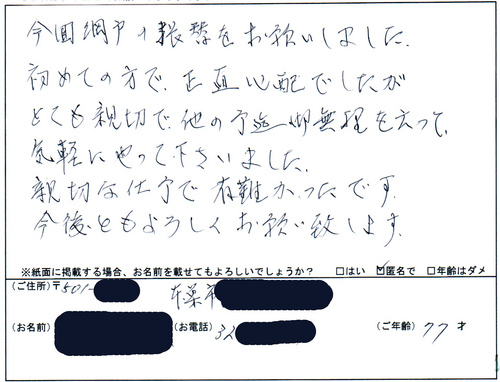 今回網戸の張替をお願いしました。
初めての方で、正直心配でしたが
とても親切で、他の予定や無理を云って、
気軽にやって下さいました。
親切な仕事で有難かったです。
今後ともよろしくお願い致します。
※紙面に掲載する場合、お名前を載せてもよろしいでしょうか? □はい ☑匿名で □年齢はダメ
(ご住所)〒501- 本巣市
(お名前) (お電話)32 (ご年齢) 77 才